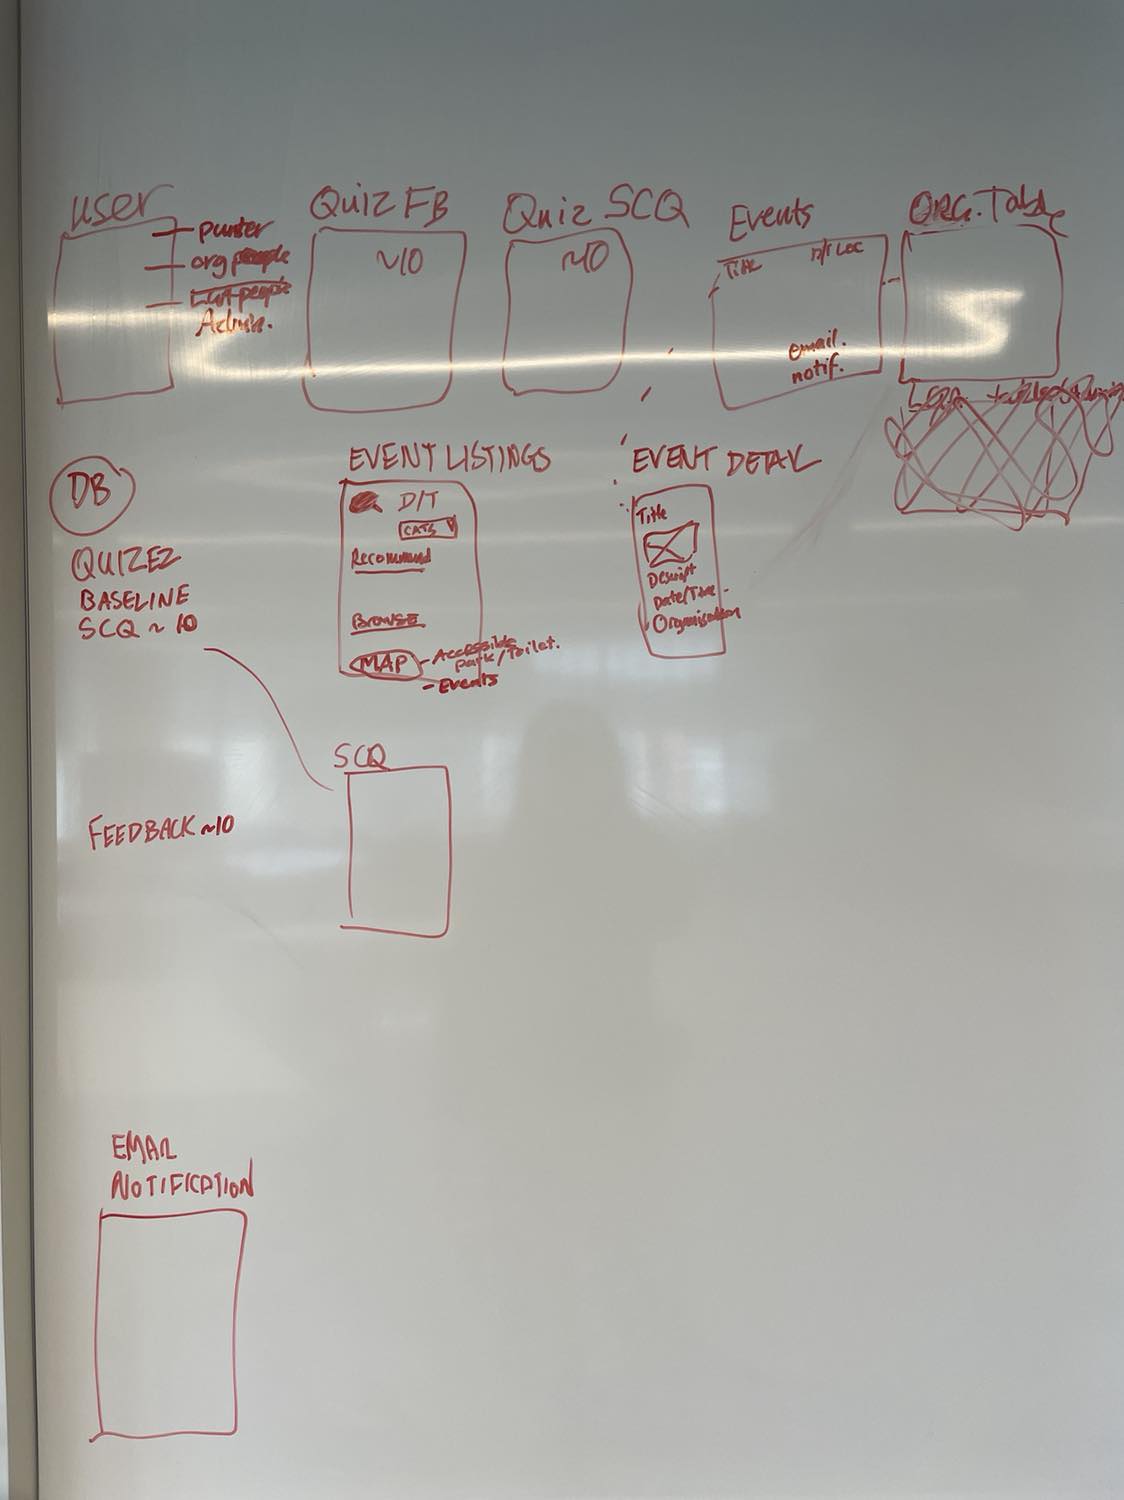 User
punter
org people
Admin.
Quiz FB
~10
Quiz SCQ
~10
Events
Title
D/T LOC
email.
notif.
ORG. Table
DB
QUIZEZ
BASELINE
SCQ ~ 10
EVENT LISTINGS
D/T
CATS
Recommend
BROWSE
MAP
- Accessible
park/Toilet.
- Events
EVENT DETAIL
Title
Descript
Date/Time -
Organisation
SCQ
FEEDBACK ~10
EMAIL
NOTIFICATION